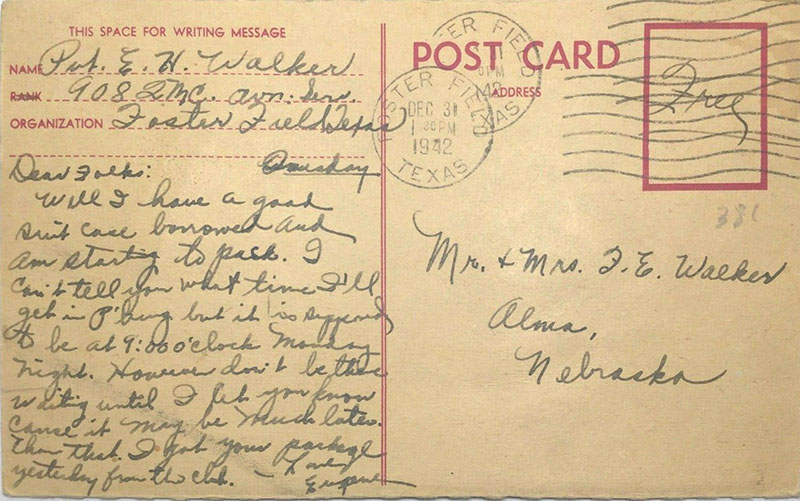 THIS SPACE FOR WRITING MESSAGE
NAME Pvt. E. H. Walker
RANK 908 QMC. Avn. Serv.
ORGANIZATION Foster Field Texas
Dear Folks:
Well I have a good
suit case borrowed and
am starting to pack. I
can't tell you what time I'll
get in P'burg but it is supposed
to be at 9:00 o'clock Monday
night. However don't be there
waiting until I let you know
cause it may be much later
than that. I got your package
yesterday from the club. — Love
Eugene
POST CARD
ADDRESS
Free
FOSTER FIELD
DEC 31
1 PM
1942
TEXAS
381
Mr. & Mrs. F. E. Walker
Alma,
Nebraska